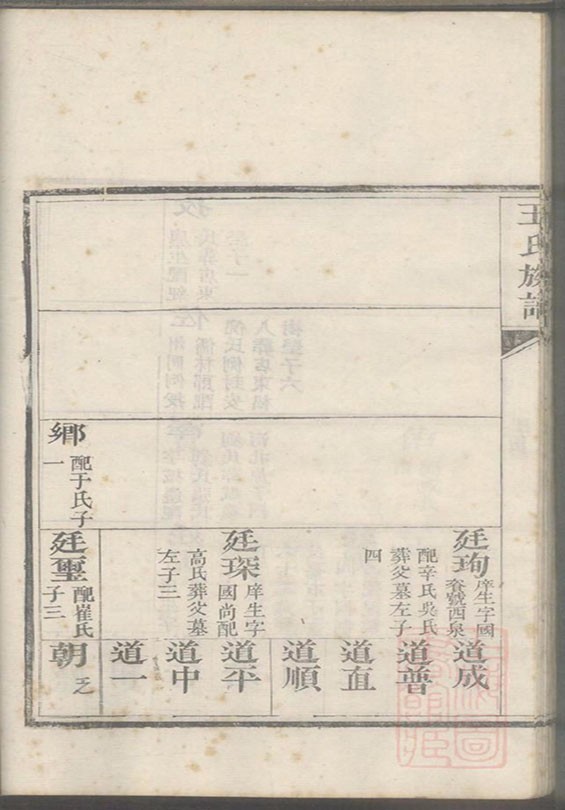 王氏族譜
廷珣
庠生字國
號西泉
配辛氏吳氏
葬父墓左子
四
廷琛
庠生字
國尚配
高氏葬父墓
左子三
鄉
配于氏子
一
廷璽
配崔氏
子三
道成
道普
道直
道順
道平
道中
道一
朝
乏